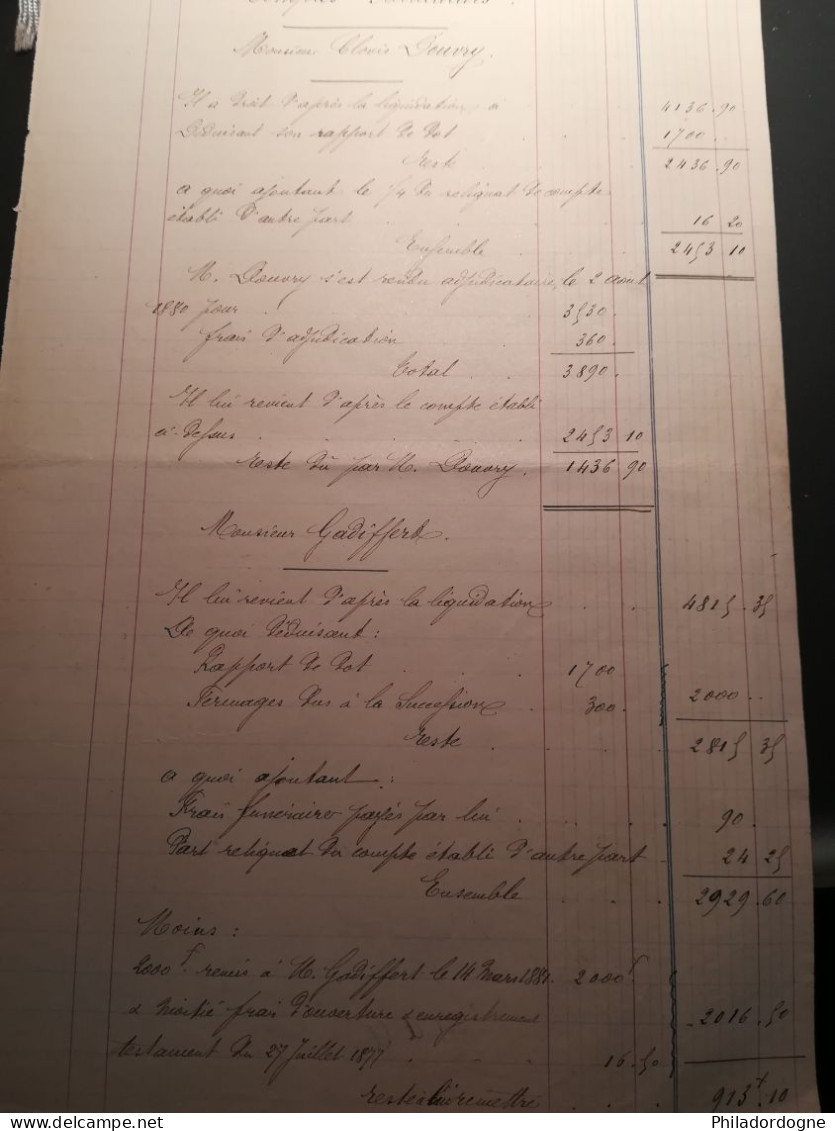 Comptes
Monsieur Clovis Douvry.
Il a droit d'après la liquidation à 4136.90
Déduisant son rapport de dot . . . 1700 ..
reste 2436.90
a quoi ajoutant le 1/4 du reliquat de compte
établi d'autre part . . . . 16 20
Ensemble . . 2453 10
M. Douvry s'est rendu adjudicataire, le 2 août
1880 pour . . . . 3530.
frais d'adjudication . 360.
Total . . 3890.
Il lui revient d'après le compte établi
ci-dessus . . . . 2453 10
reste dû par M. Douvry. 1436 90
Monsieur Gadiffert.
Il lui revient d'après la liquidation . . 4815.35
De quoi déduisant :
Rapport de dot . . . 1700
Fermages dus à la Succession . 300. 2000 ..
reste . . . . 2815 35
a quoi ajoutant :
Frais funéraires payés par lui . . . . 90 .
Part reliquat du compte établi d'autre part 24 25
Ensemble . . . 2929.60
Moins :
2000f remis à M. Gadiffert le 14 Mars 1881. 2000f
& moitié frais d'ouverture & enregistrement - 2016.50
testament du 27 Juillet 1877 . . . 16.50
reste à lui remettre . . . 913f.10
Philadordogne